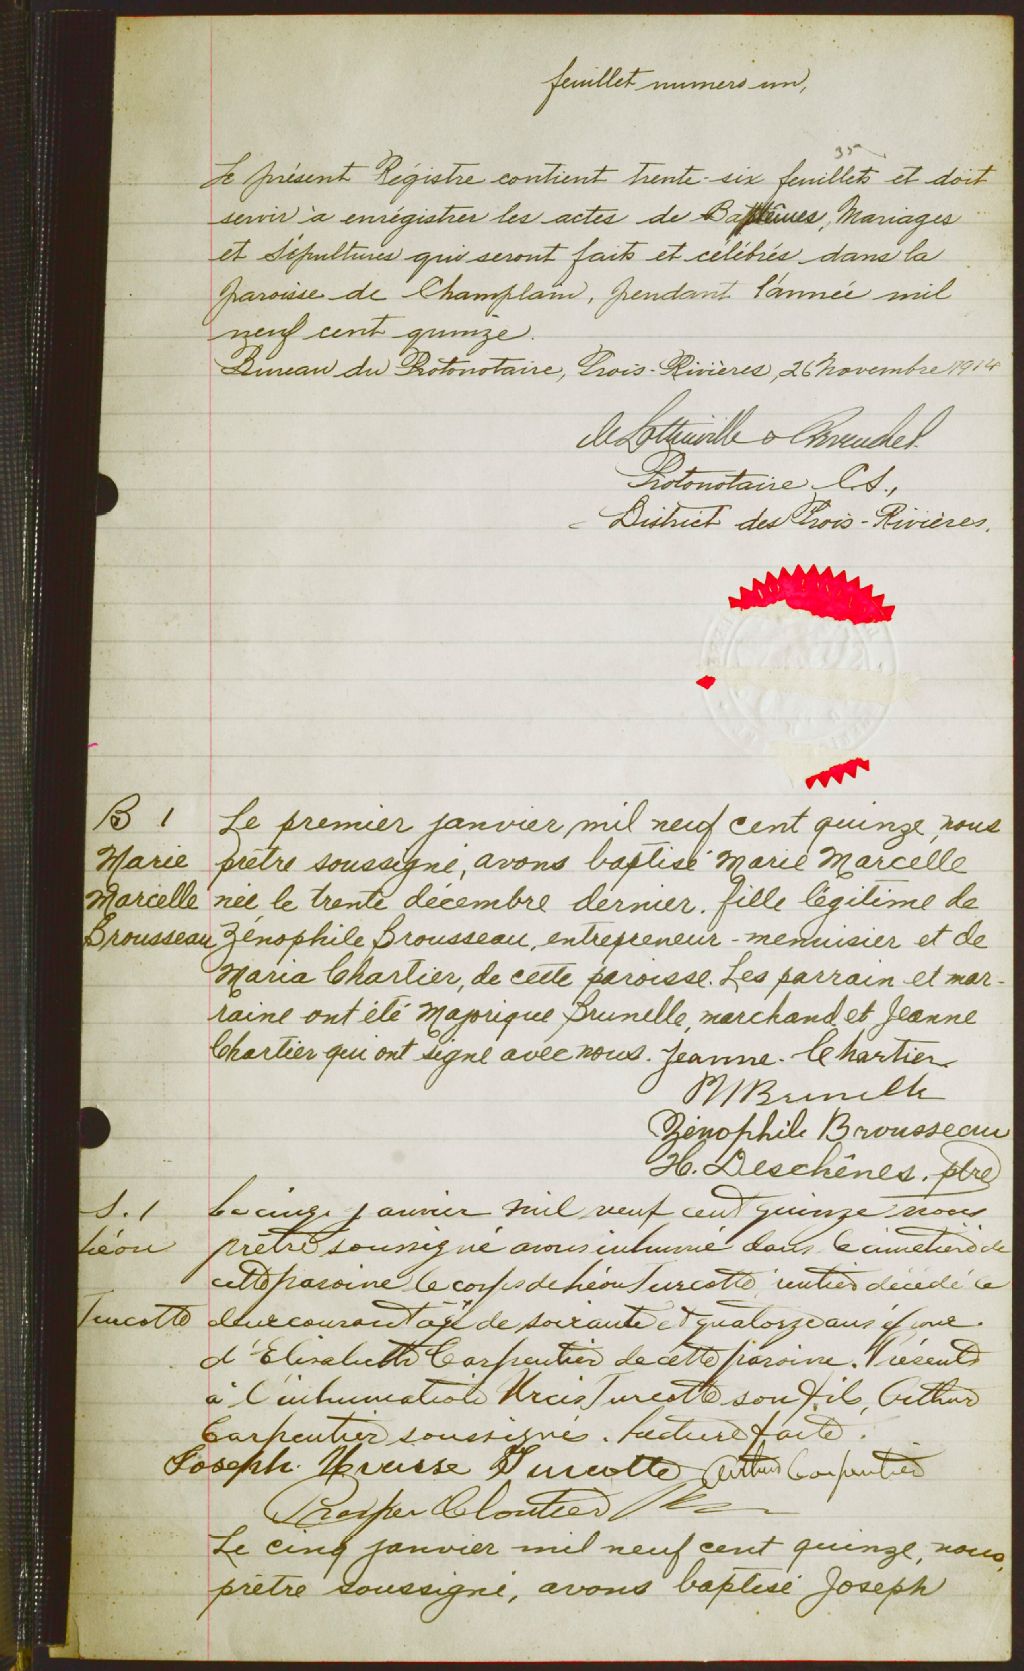 feuillet numero un,
35
Le présent Régistre contient trente-six feuillets et doit
servir à enrégistrer les actes de Baptêmes, Mariages
et Sépultures qui seront faits et célébrés dans la
paroisse de Champlain, pendant l'année mil
neuf cent quinze.
Bureau du Protonotaire, Trois-Rivières, 26 Novembre 1914
Protonotaire C.S.,
District des Trois-Rivières.
B 1 Le premier janvier mil neuf cent quinze, nous
Marie prêtre soussigné, avons baptisé Marie Marcelle
Marcelle née le trente décembre dernier, fille légitime de
Brousseau Zénophile Brousseau, entrepreneur-menuisier et de
Maria Chartier, de cette paroisse. Les parrain et mar-
raine ont été Majorique Brunelle, marchand et Jeanne
Chartier qui ont signé avec nous. Jeanne Chartier
M Brunelle
Zénophile Brousseau
H. Deschênes, ptre
S. 1 Le cinq janvier mil neuf cent quinze nous
Léon prêtre soussigné avons inhumé dans le cimetière de
cette paroisse le corps de Léon Turcotte, rentier décédé le
Turcotte deux courant âgé de soixante et quatorze ans époux
d'Elisabeth Carpentier de cette paroisse. Présents
à l'inhumation Turcotte son fils, Arthur
Carpentier soussignés. Lecture faite.
Joseph Turcotte Arthur Carpentier
Prosper Cloutier Ptre
Le cinq janvier mil neuf cent quinze, nous,
prêtre soussigné, avons baptisé Joseph